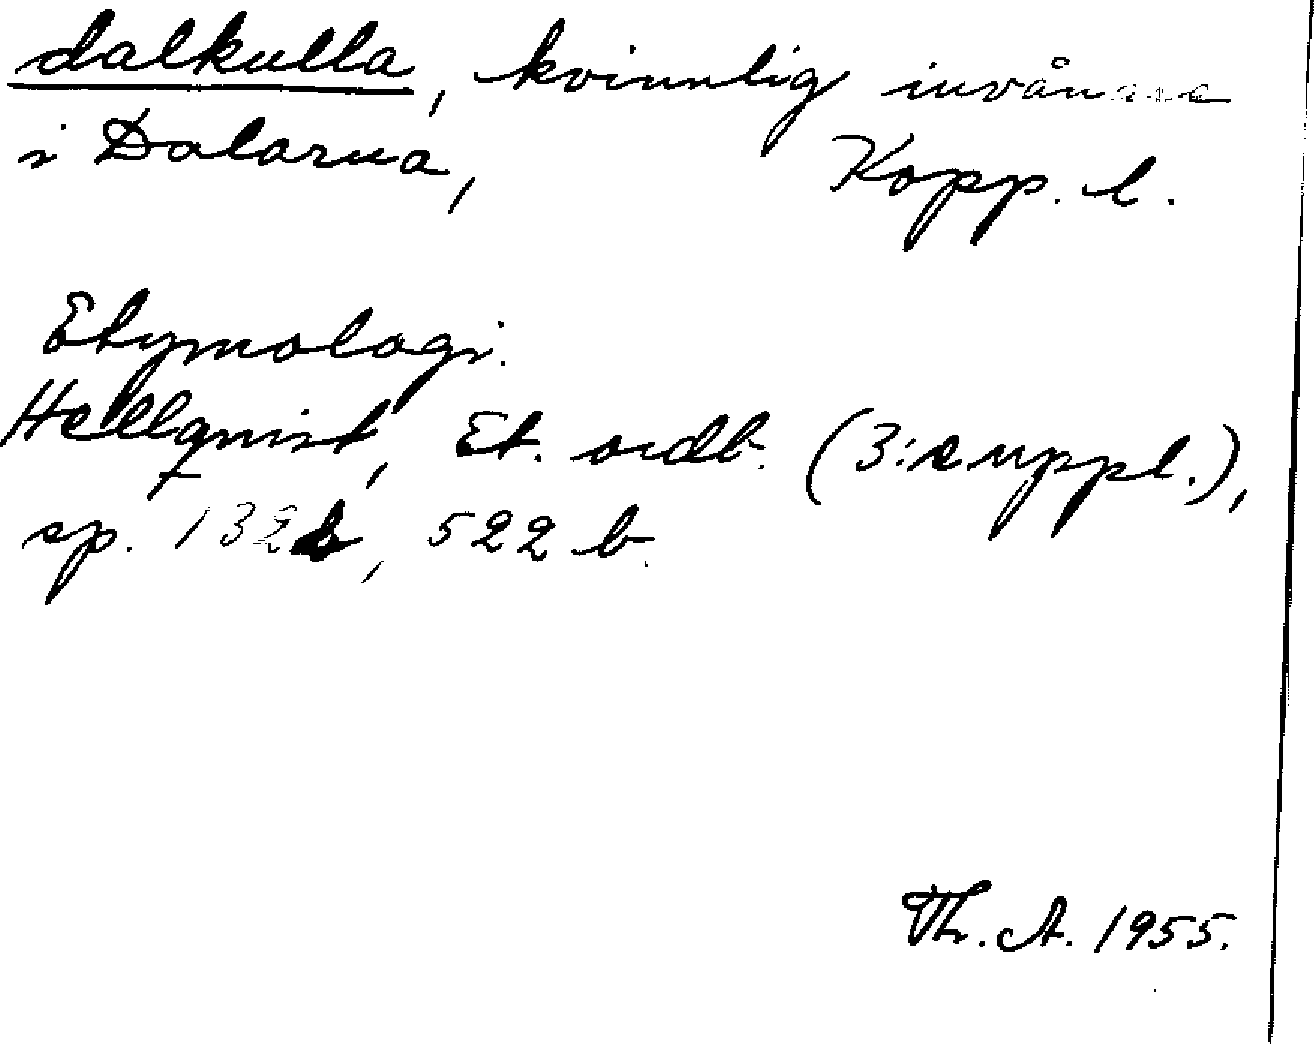 dalkulla, kvinnlig invånare
i Dalarna, Kopp. l.
Etymologi.
Hellqvist, Et. ordb. (3:e uppl.),
sp. 132 b, 522 b.
Th. A. 1955.